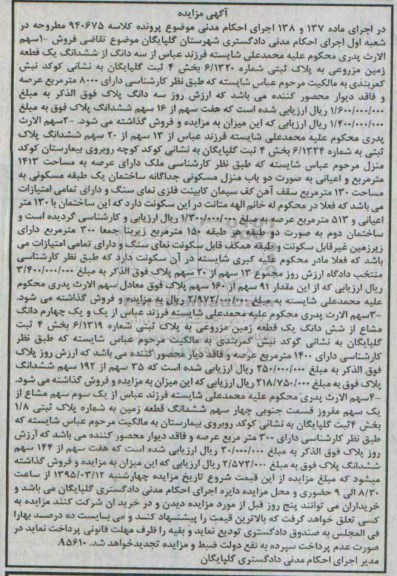 آگهی مزایده
در اجرای ماده ۱۳۷ و ۱۳۸ اجرای احکام مدنی موضوع پرونده کلاسه ۹۴۰۶۷۵ مطروحه در
شعبه اول اجرای احکام مدنی دادگستری شهرستان گلپایگان موضوع تقاضی فروش ۱-سهم
الارث پدری محکوم علیه محمدعلی شایسته فرزند عباس از سه دانگ از ششدانگ یک قطعه
زمین مزروعی به پلاک ثبتی شماره ۶/۱۳۲۰ بخش ۴ ثبت گلپایگان به نشانی کوکد نبش
کمربندی به مالکیت مرحوم عباس شایسته که طبق نظر کارشناسی دارای ۸۰۰۰ مترمربع عرصه
و فاقد دیوار محصور کننده می باشد که ارزش روز سه دانگ پلاک فوق الذکر به مبلغ
۱/۶۰۰/۰۰۰/۰۰۰ ریال ارزیابی شده است که هفت سهم از ۱۶ سهم ششدانگ پلاک فوق به مبلغ
۱/۴۰۰/۰۰۰/۰۰۰ ریال ارزیابی که این میزان به مزایده و فروش گذاشته می شود. ۲-سهم الارث
پدری محکوم علیه محمدعلی شایسته فرزند عباس از ۱۳ سهم از ۲۰ سهم ششدانگ پلاک
ثبتی به شماره ۶/۱۳۳۴ بخش ۴ ثبت گلپایگان به نشانی کوکد کوچه روبروی بیمارستان کوکد
منزل مرحوم عباس شایسته که طبق نظر کارشناسی ملک دارای عرصه به مساحت ۱۴۱۳
مترمربع و اعیانی به صورت دو باب منزل مسکونی جداگانه ساختمان یک طبقه مسکونی به
مساحت ۱۳۰ مترمربع سقف آهن کف سیمان کابینت فلزی نمای سنگ و دارای تمامی امتیازات
می باشد که فعلا در محکوم له خانم الهه متانت در این سکونت دارد که این ساختمان با ۱۳۰ متر
اعیانی و ۵۱۳ مترمربع عرصه به مبلغ ۱/۳۰۰/۰۰۰/۰۰۰ ریال ارزیابی و کارشناسی گردیده است و
ساختمان دوم به صورت دو طبقه هر طبقه ۱۵۰ مترمربع زیربنا جمعا ۳۰۰ مترمربع دارای
زیرزمین غیرقابل سکونت و طبقه همکف قابل سکونت نمای سنگ و دارای تمامی امتیازات می
باشد که فعلا مادر محکوم علیه کبری شایسته در آن سکونت دارد که طبق نظر کارشناسی
منتخب دادگاه ارزش روز مجموع ۱۳ سهم از ۲۰ سهم پلاک فوق الذکر به مبلغ ۳/۴۰۰/۰۰۰/۰۰۰
ریال ارزیابی که از این مقدار ۹۱ سهم از ۱۶۰ سهم پلاک فوق معادل سهم الارث پدری محکوم
علیه محمدعلی شایسته به مبلغ ۲/۹۷۲/۰۰۰/۰۰۰ ریال به مزایده و فروش گذاشته می شود.
۳-سهم الارث پدری محکوم علیه محمدعلی شایسته فرزند عباس از یک و یک چهارم دانگ
مشاع از شش دانگ یک قطعه زمین مزروعی به پلاک ثبتی شماره ۶/۱۳۱۹ بخش ۴ ثبت
گلپایگان به نشانی کوکد نبش کمربندی به مالکیت مرحوم عباس شایسته که طبق نظر
کارشناسی دارای ۱۴۰۰ مترمربع عرصه و فاقد دیوار محصور کننده می باشد که ارزش روز پلاک
فوق الذکر به مبلغ ۲۵۰/۰۰۰/۰۰۰ ریال ارزیابی شده است که ۳۵ سهم از ۱۹۲ سهم ششدانگ
پلاک فوق به مبلغ ۲۱۸/۷۵۰/۰۰۰ ریال ارزیابی که این میزان به مزایده و فروش گذاشته می شود.
۴-سهم الارث پدری محکوم علیه محمدعلی شایسته فرزند عباس از یک سوم سهم مشاع از
یک سهم مفروز قسمت جنوبی چهار سهم ششدانگ قطعه زمین به شماره پلاک ثبتی ۱/۸
بخش ۴ ثبت گلپایگان به نشانی کوکد روبروی بیمارستان به مالکیت مرحوم عباس شایسته که
طبق نظر کارشناسی دارای ۳۰۰ متر مربع عرصه و فاقد دیوار محصور کننده می باشد که ارزش
روز پلاک فوق الذکر به مبلغ ۳۰/۰۰۰/۰۰۰ ریال ارزیابی شده است که هفت سهم از ۱۴۴ سهم
ششدانگ پلاک فوق به مبلغ ۲/۵۷۲/۰۰۰ ریال ارزیابی که این میزان به مزایده و فروش گذاشته
میشود که مبلغ مزایده از این قیمت شروع تاریخ مزایده چهارشنبه ۱۳۹۵/۰۳/۱۲ از ساعت
۸/۳۰ الی ۹ حضوری و محل مزایده دایره اجرای احکام مدنی دادگستری گلپایگان می باشد و
خریداران می توانند پنج روز قبل از مورد مزایده دیدن و در خرید ان شرکت کنند مزایده به
کسی تعلق خواهد گرفت که بالاترین قیمت را پیشنهاد کند و می بایست ده درصد بهارا
فی المجلس به صندوق دادگستری تودیع نماید و بقیه را ظرف مهلت قانونی پرداخت نماید در
صورت عدم پرداخت سپرده به نفع دولت ضبط و مزایده تجدیدخواهد شد. ۹۵۶۱۰
مدیر اجرای احکام مدنی دادگستری گلپایگان